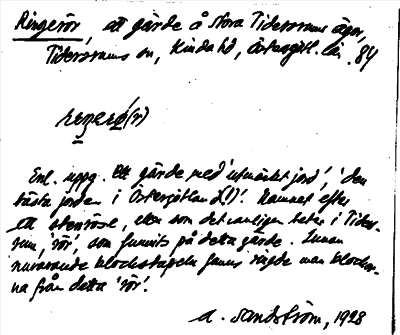 Ringerör, ett gärde å Norra Tidersrums ägor,
Tidersrums sn, Kinda hd, Östergötl. län. 84
Enl. uppg. Ett gärde med 'utmärkt jord', 'den
bästa jorden i Östergötland(!)'. Namnet efter
ett stenröse, eller som det vanligen heter i Tiders-
rum, 'rör', som funnits på detta gärde. Innan
nuvarande klockstapeln fanns ringde man klockor-
na från detta 'rör'.
A. Sandström, 1928